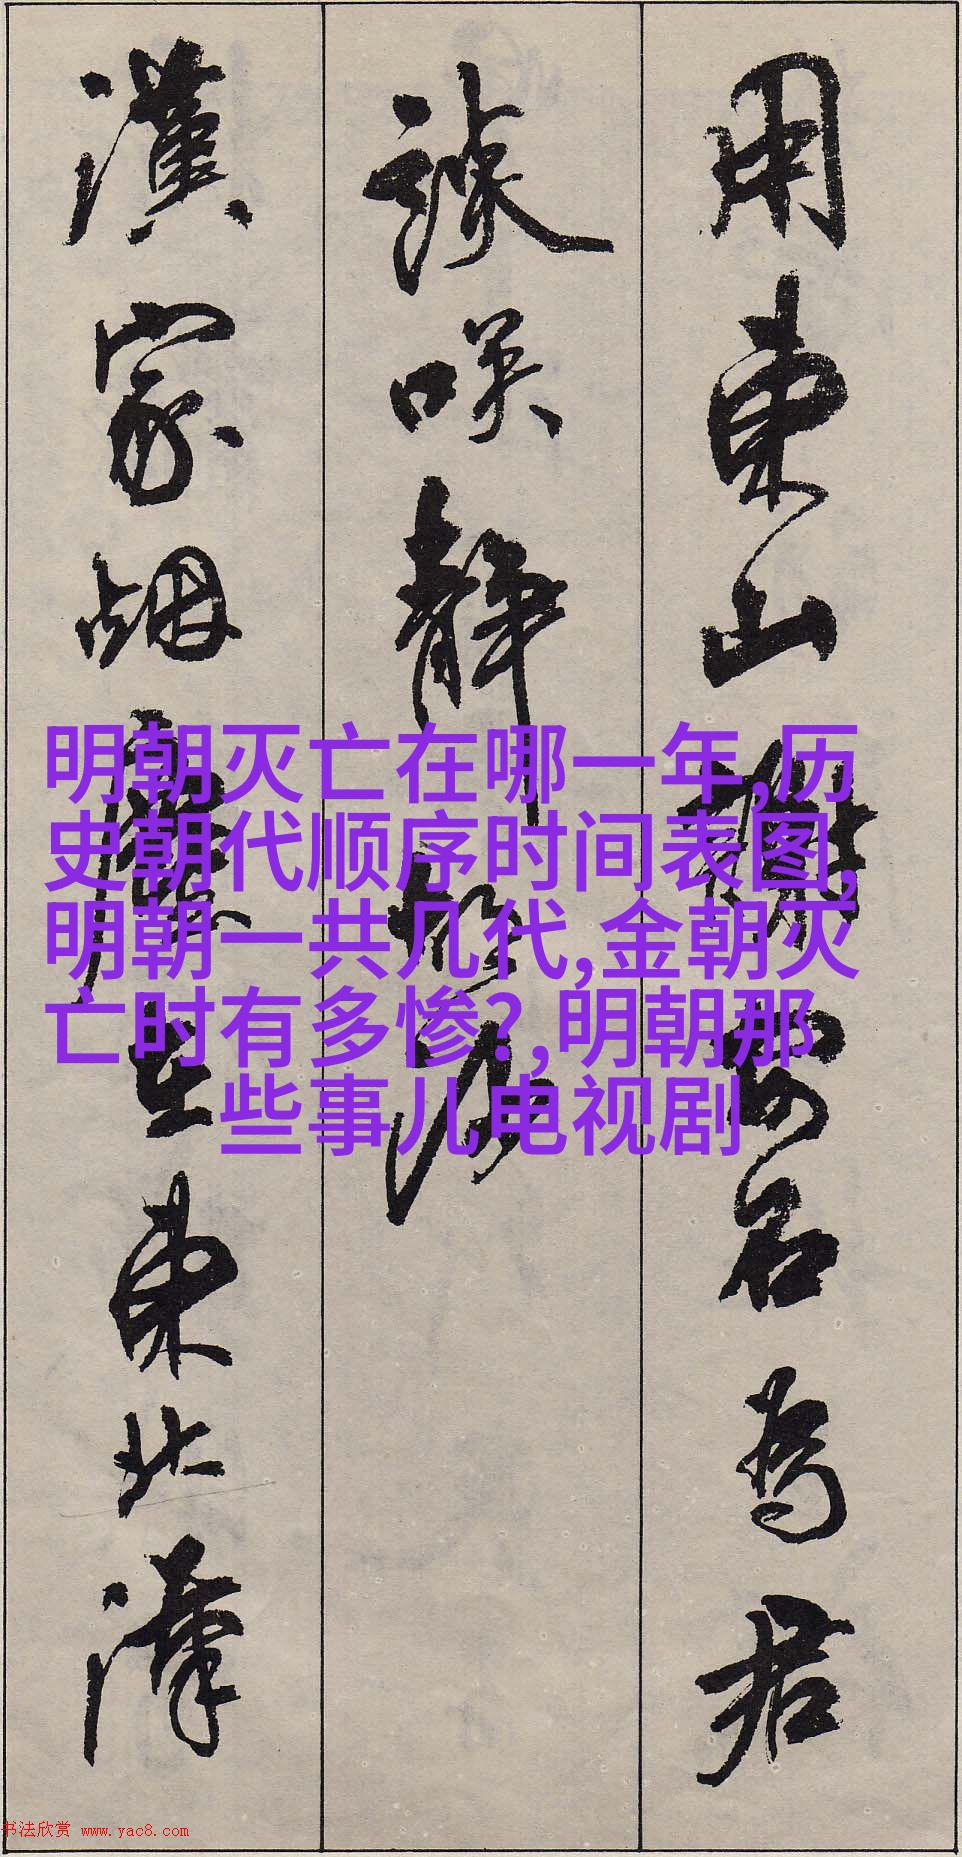 用東山謝安石為君
談咲靜胡沙
漢家烟塵在東北漢
明朝灭亡在哪一年,历
史朝代顺序时间表图,
明朝一共几代,金朝灭
亡时有多惨?,明朝那
些事儿电视剧
书法欣赏 www.yac8.com